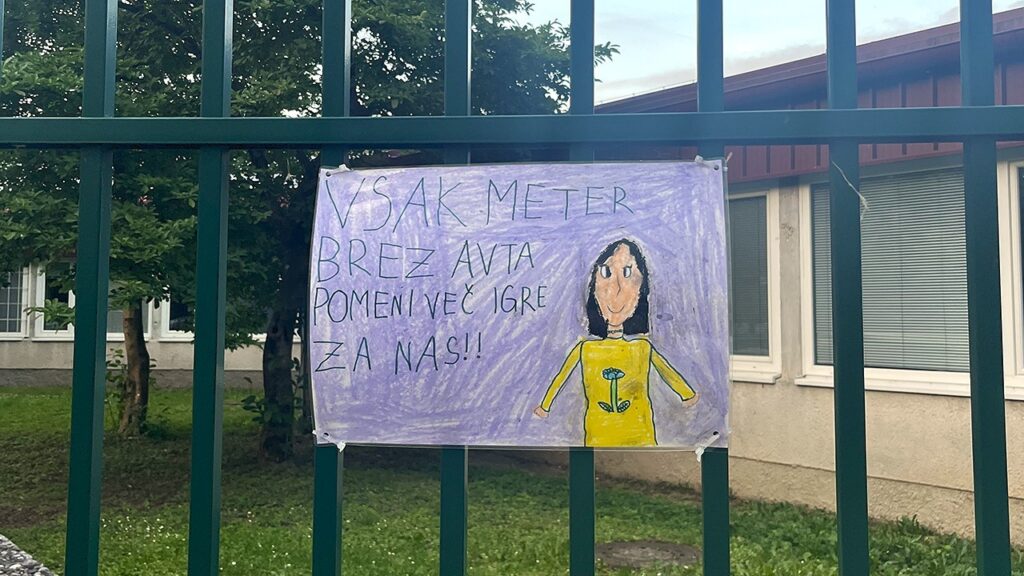 VSAK METER
BREZ AVTA
POMENI VEČ IGRE
ZA NAS!!